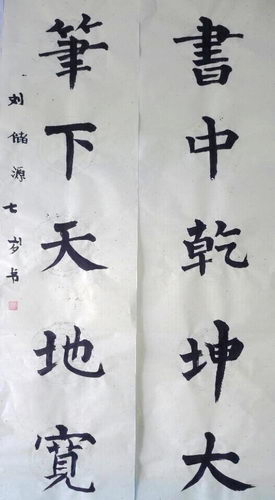 書中乾坤大
筆下天地寬
刘储源七岁书